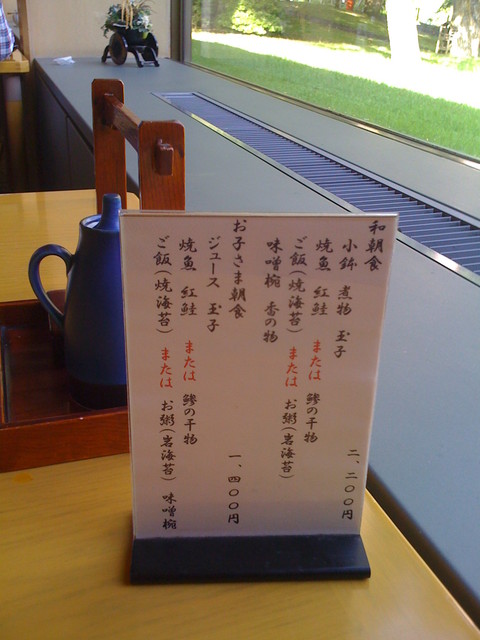 和朝食
小鉢 煮物 玉子 二、二〇〇円
焼魚 紅鮭 または 鯵の干物
ご飯(焼海苔) または お粥(岩海苔)
味噌椀 香の物
お子さま朝食 一、四〇〇円
ジュース 玉子
焼魚 紅鮭 または 鯵の干物
ご飯(焼海苔) または お粥(岩海苔) 味噌椀